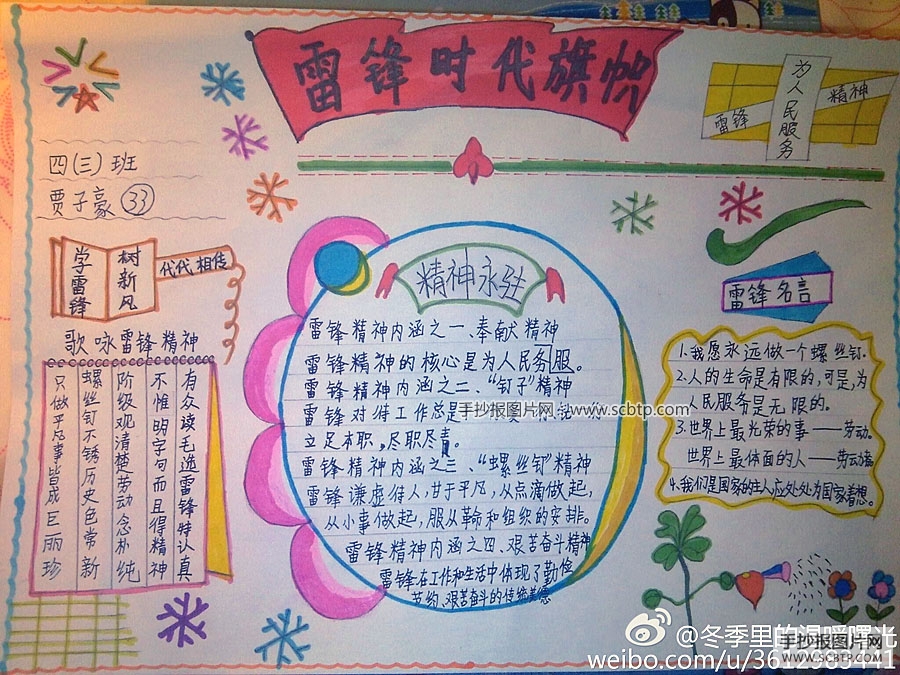 雷锋时代旗帜
为人民服务
雷锋
精神
四(三)班
贾子豪 33
学雷锋
树新风
代代相传
歌咏雷锋精神
有众读毛选雷锋特认真
不惟明字句而且得精神
阶级观清楚劳动念朴纯
螺丝钉不锈历史色常新
只做平凡事皆成巨丽珍
精神永驻
雷锋精神内涵之一、奉献精神
雷锋精神的核心是为人民务服。
雷锋精神内涵之二、“钉子”精神
雷锋对待工作总是
立足本职,尽职尽责。
雷锋精神内涵之三、“螺丝钉”精神
雷锋谦虚待人,甘于平凡,从点滴做起,
从小事做起,服从革命和组织的安排。
雷锋精神内涵之四、艰苦奋斗精神
雷锋在工作和生活中体现了勤俭
节约、艰苦奋斗的传统美德
雷锋名言
1.我愿永远做一个螺丝钉。
2.人的生命是有限的,可是,为
人民服务是无限的。
3.世界上最光荣的事——劳动。
世界上最体面的人——劳动者
4.我们是国家的主人应处处为国家着想。
手抄报图片网 - www.scbtp.com
@冬季里的温暖曙光
手抄报图片网
WWW.SCBTP.COM